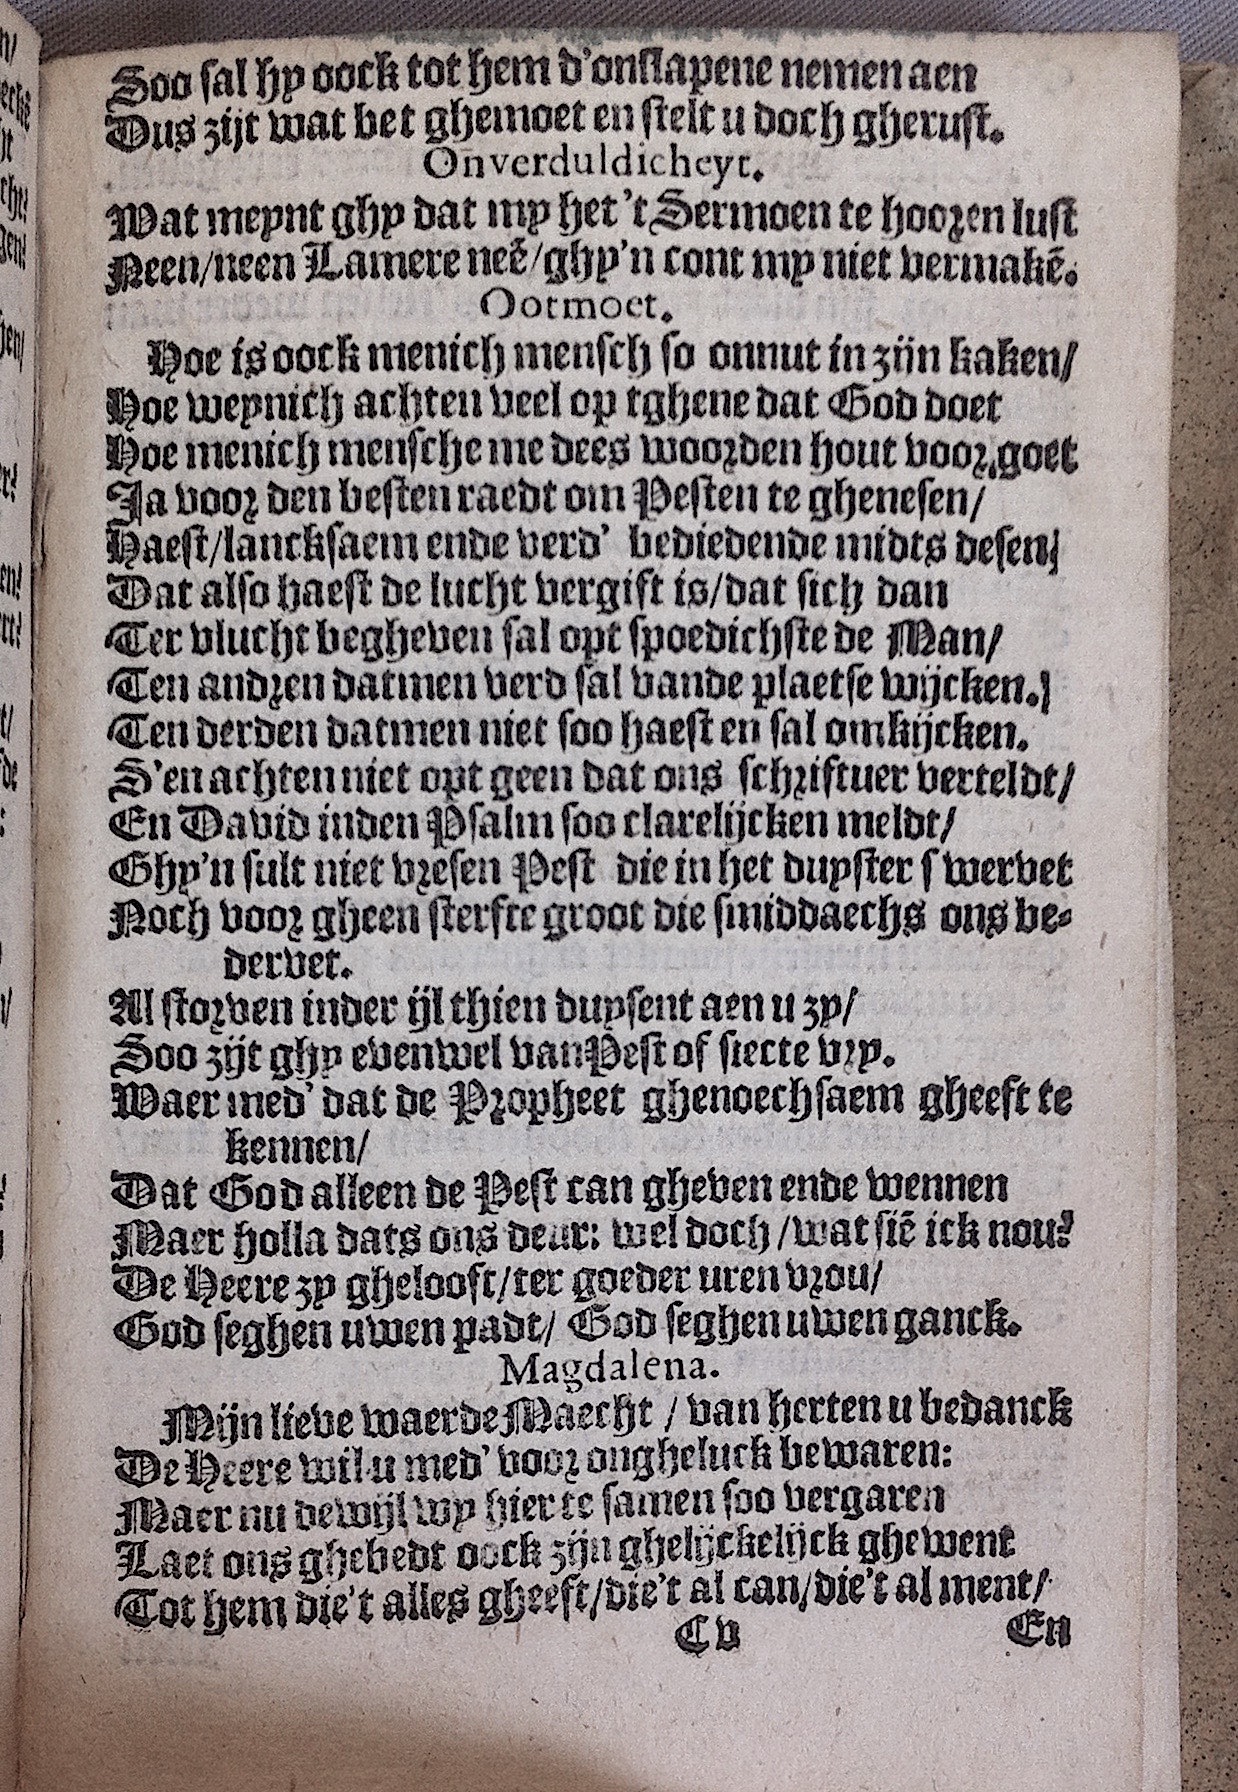 Soo sal hy oock tot hem d'onslapene nemen aen
Dus zijt wat bet ghemoet en stelt u doch gherust.
Onverduldicheyt.
Wat meynt ghy dat my het 't Sermoen te hooren lust
Neen/neen Lamere neẽ/ghy'n cont my niet vermakẽ.
Ootmoet.
Hoe is oock menich mensch so onnut in zijn kaken/
Hoe weynich achten veel op tghene dat God doet
Hoe menich mensche me dees woorden hout voor goet
Ja voor den besten raedt om Pesten te ghenesen/
Haest/lancksaem ende verd' bediedende midts desen/
Dat also haest de lucht vergift is/dat sich dan
Ter vlucht begheven sal opt spoedichste de Man/
Ten andren datmen verd sal vande plaetse wijcken.
Ten derden datmen niet soo haest en sal omkijcken.
S'en achten niet opt geen dat ons schriftuer verteldt/
En David inden Psalm soo clarelijcken meldt/
Ghy'n sult niet vresen Pest die in het duyster swervet
Noch voor gheen sterfte groot die smiddaechs ons be-
dervet.
Al storven inder ijl thien duysent aen u zy/
Soo zijt ghy evenwel van Pest of siecte vry.
Waer med' dat de Propheet ghenoechsaem gheeft te
kennen/
Dat God alleen de Pest can gheven ende wennen
Maer holla dats ons deur: wel doch/wat siẽ ick nou?
De Heere zy ghelooft/ter goeder uren vrou/
God seghen uwen padt/ God seghen uwen ganck.
Magdalena.
Mijn lieve waerde Maecht / van herten u bedanck
De Heere wil u med' voor ongheluck bewaren:
Maer nu dewijl wy hier te samen soo vergaren
Laet ons ghebedt oock zijn ghelijckelijck ghewent
Tot hem die't alles gheeft/die't al can/die't al ment/
C v En